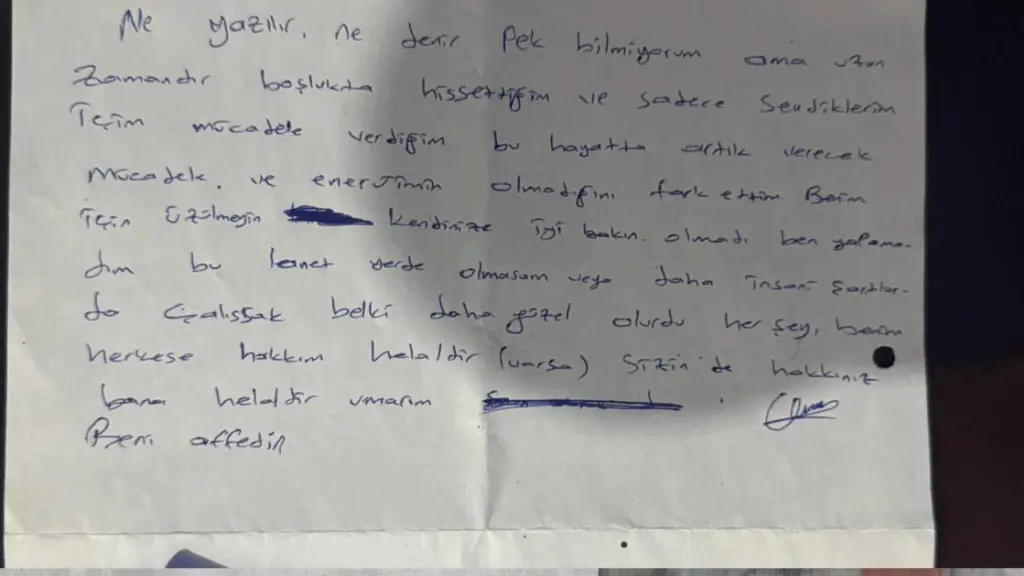 Ne yazılır, ne denir pek bilmiyorum ama uzun
zamandır boşlukta hissettiğim ve sadece sevdiklerim
için mücadele verdiğim bu hayatta artık verecek
mücadele, ve enerjimin olmadığını fark ettim Benim
için üzülmeyin kendinize iyi bakın. olmadı ben yapama-
dım bu lanet yerde olmasam veya daha insani şartlar-
da çalışsak belki daha güzel olurdu her şey, benim
herkese hakkım helaldir (varsa) Sizin de hakkınız
bana helaldir umarım
Beni affedin